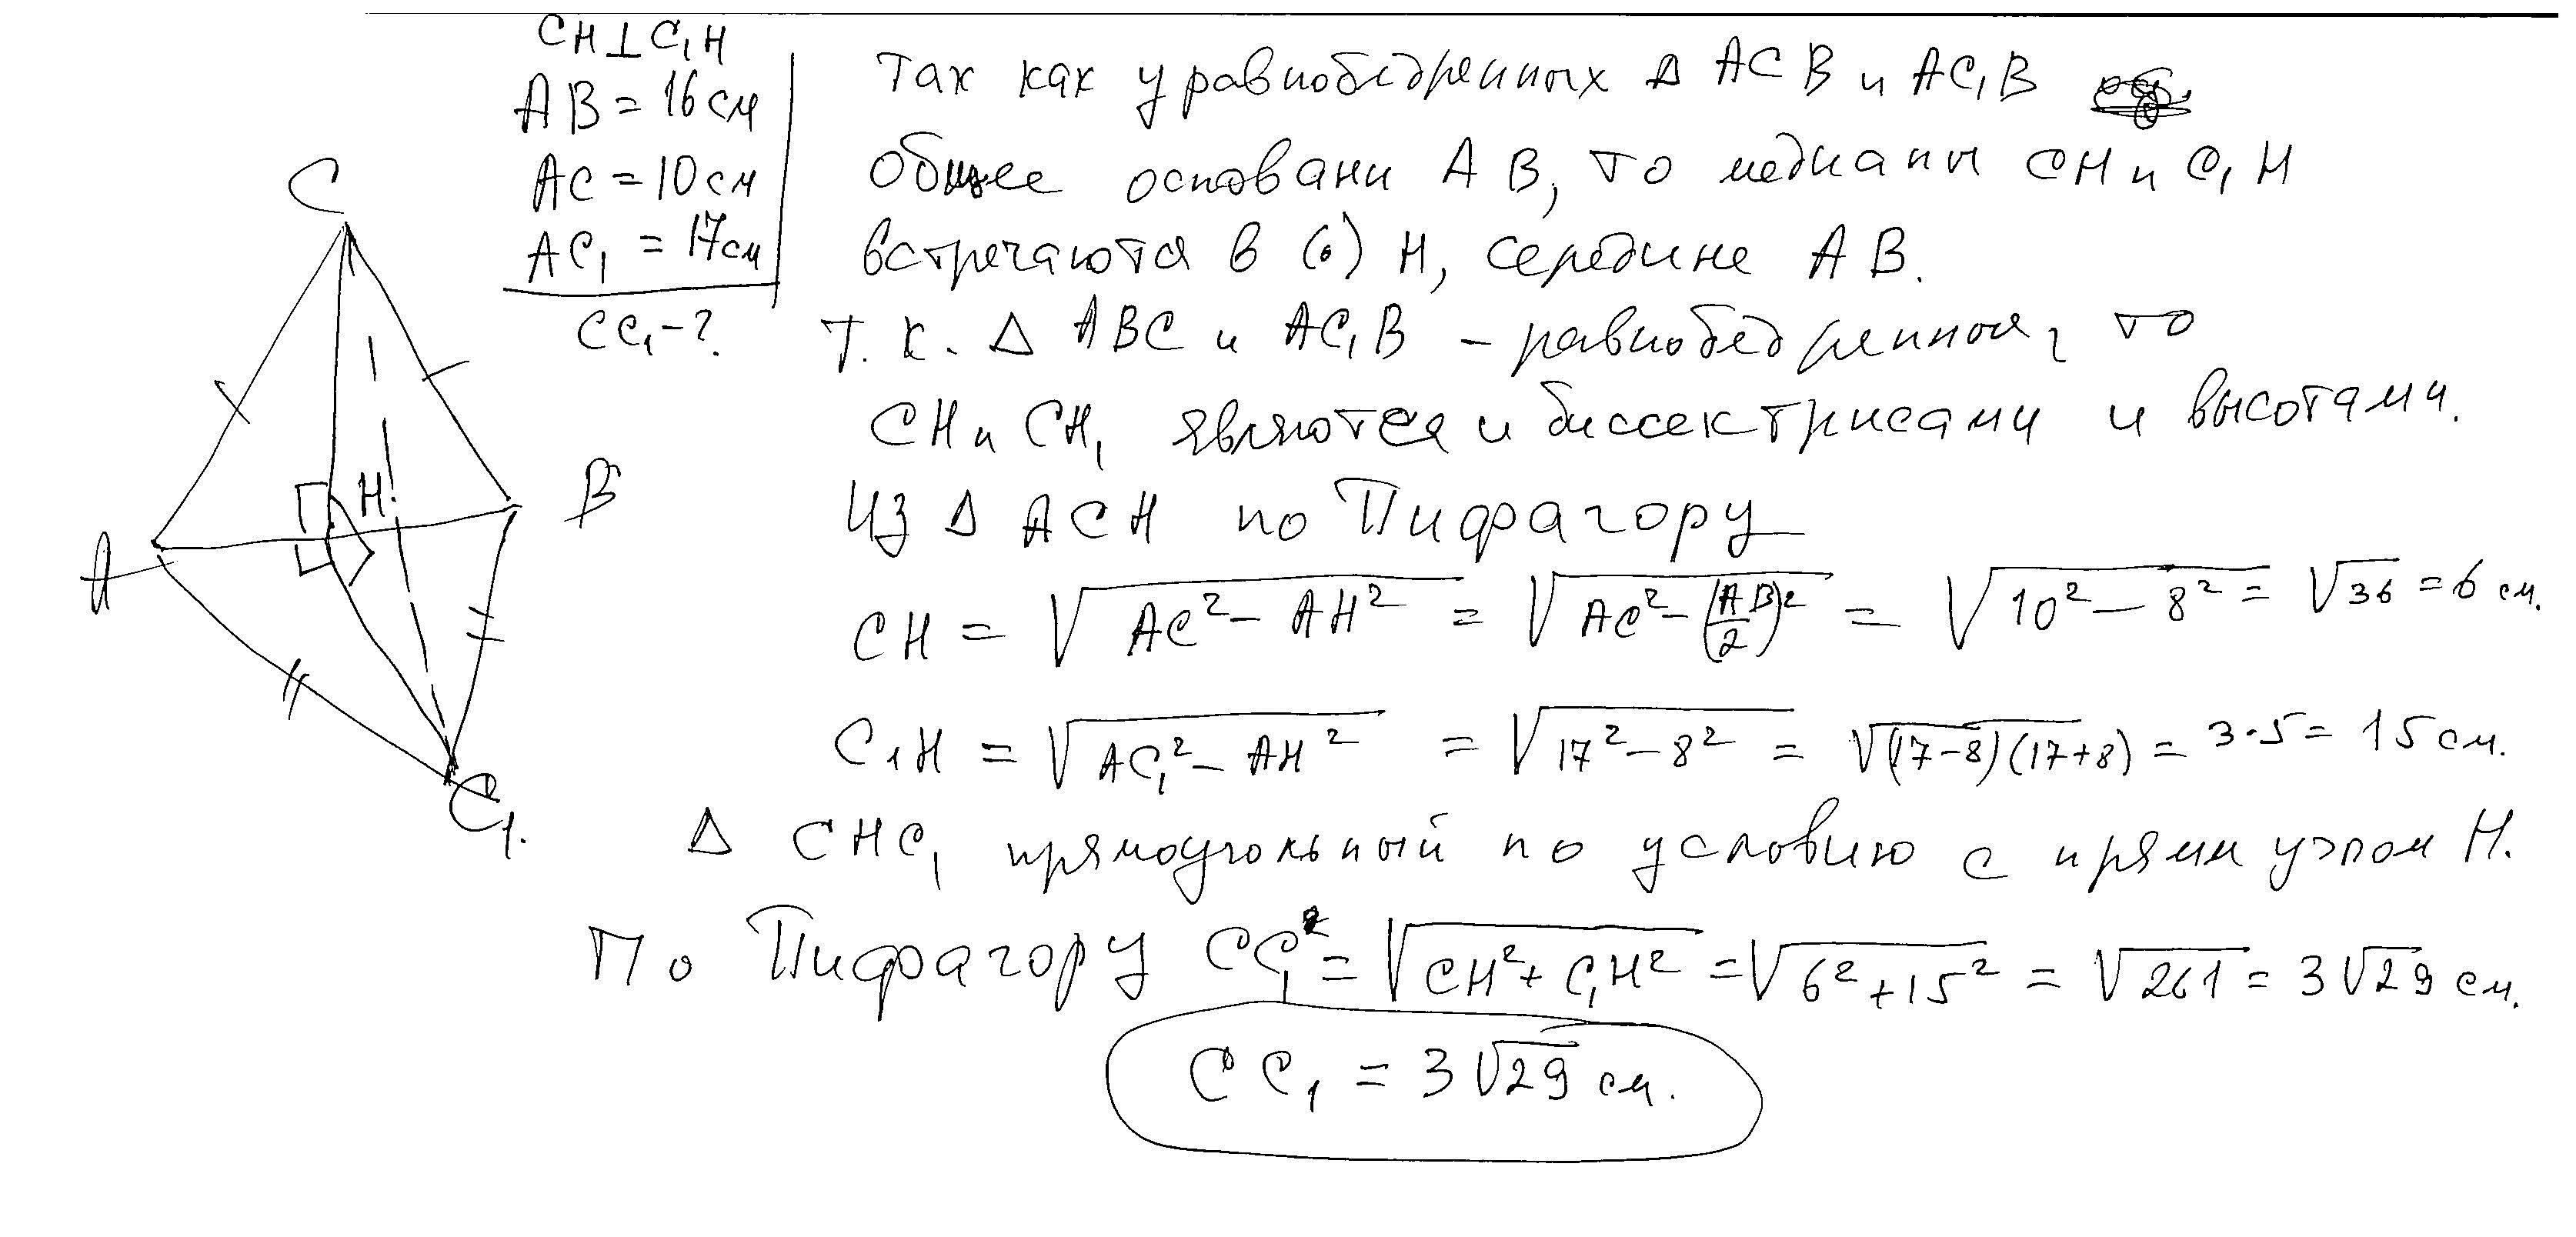 CH⊥C₁H
AB = 16 см
AC = 10 см
AC₁ = 17 см
CC₁ - ?
Так как у равнобедренных Δ ACB и AC₁B
общее основани AB, то медианы CH и C₁H
встречаются в (·) H, середине AB.
Т. к. Δ ABC и AC₁B - равнобедренные, то
CH и CH₁ являются и биссектрисами и высотами.
Из Δ ACH по Пифагору
CH = √(AC² - AH²) = √(AC² - (AB/2)²) = √(10² - 8²) = √36 = 6 см.
C₁H = √(AC₁² - AH²) = √(17² - 8²) = √((17-8)(17+8)) = 3·5 = 15 см.
Δ CHC₁ прямоугольный по условию с прямм углом H.
По Пифагору CC₁² = √(CH² + C₁H²) = √(6² + 15²) = √261 = 3√29 см.
CC₁ = 3√29 см.
C
A
H
B
C₁.